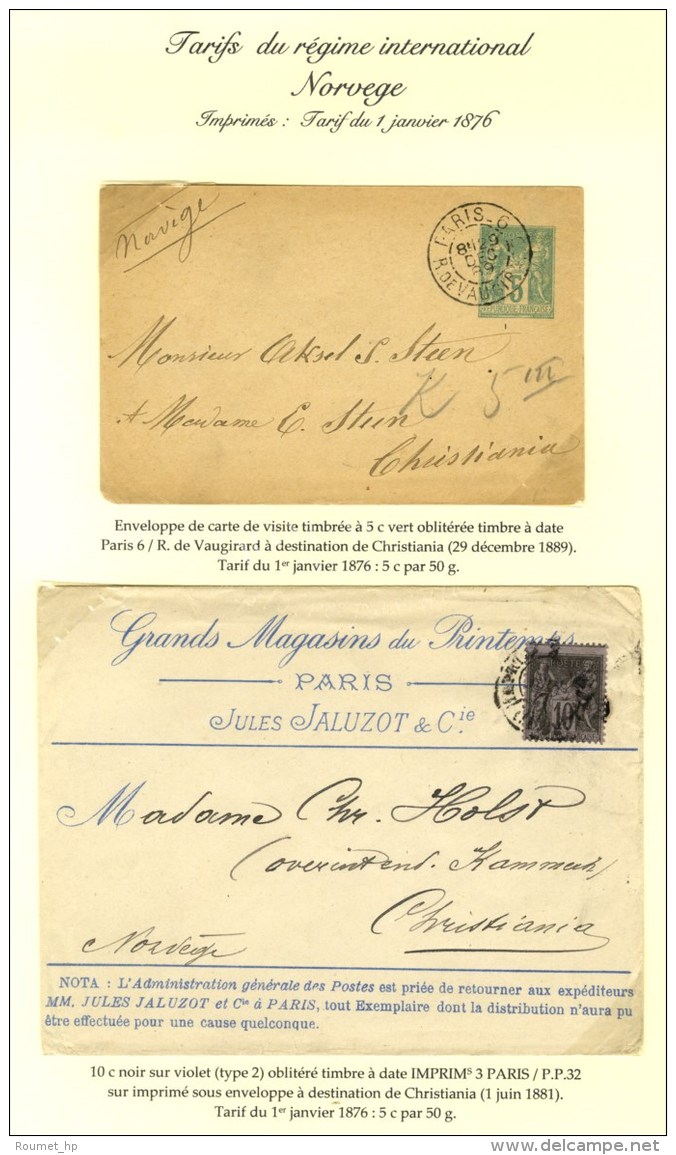 Tarifs du régime international
Norvege
Imprimés : Tarif du 1 janvier 1876
Norvège
PARIS_6
R. DE VAUGIR
5
REPUBLIQUE FRANÇAISE
Monsieur Aksel S. Steen
Madame E. Steen
K 5
Christiania
Enveloppe de carte de visite timbrée à 5 c vert oblitérée timbre à date
Paris 6 / R. de Vaugirard à destination de Christiania (29 décembre 1889).
Tarif du 1er janvier 1876 : 5 c par 50 g.
Grands Magasins du Printemps
PARIS
JULES JALUZOT & Cie.
10
Madame Chr. Holst
Christiania
Norvège
NOTA : L'Administration générale des Postes est priée de retourner aux expéditeurs
MM. JULES JALUZOT et Cie à PARIS, tout Exemplaire dont la distribution n'aura pu
être effectuée pour une cause quelconque.
10 c noir sur violet (type 2) oblitéré timbre à date IMPRIMS 3 PARIS / P.P.32
sur imprimé sous enveloppe à destination de Christiania (1 juin 1881).
Tarif du 1er janvier 1876 : 5 c par 50 g.
Roumet_hp
delcampe.net